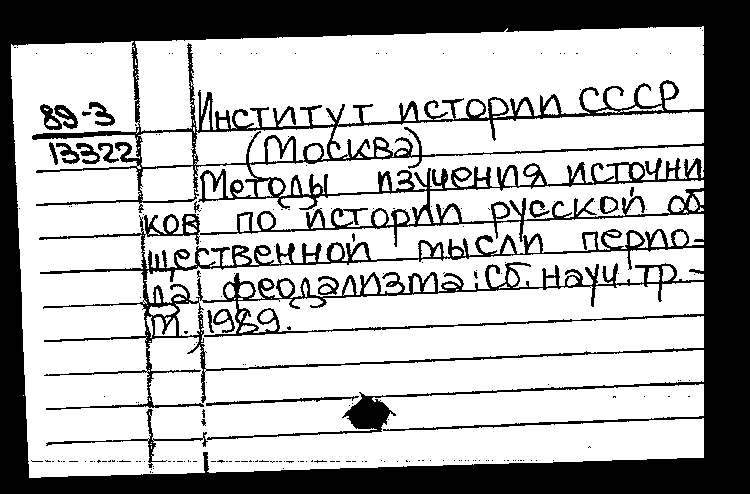 89-3
13322
Институт истории СССР
(Москва)
Методы изучения источни
ков по истории русской об
щественной мысли перио-
да феодализма: Сб. науч. тр. -
М., 1989.